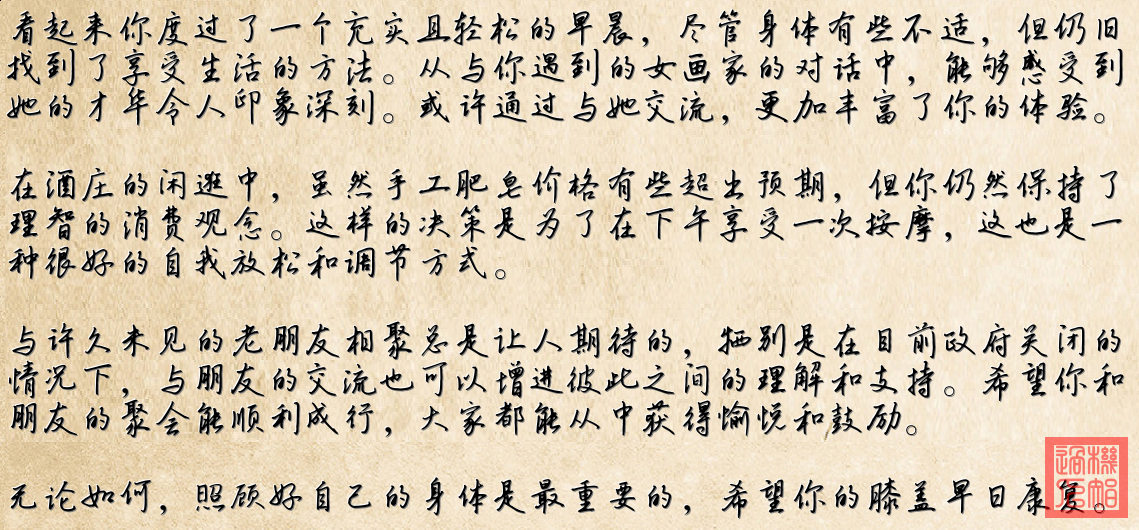 看起来你度过了一个充实且轻松的早晨，尽管身体有些不适，但仍旧
找到了享受生活的方法。从与你遇到的女画家的对话中，能够感受到
她的才华令人印象深刻。或许通过与她交流，更加丰富了你的体验。
在酒庄的闲逛中，虽然手工肥皂价格有些超出预期，但你仍然保持了
理智的消费观念。这样的决策是为了在下午享受一次按摩，这也是一
种很好的自我放松和调节方式。
与许久未见的老朋友相聚总是让人期待的，特别是在目前政府关闭的
情况下，与朋友的交流也可以增进彼此之间的理解和支持。希望你和
朋友的聚会能顺利成行，大家都能从中获得愉悦和鼓励。
无论如何，照顾好自己的身体是最重要的，希望你的膝盖早日康复。